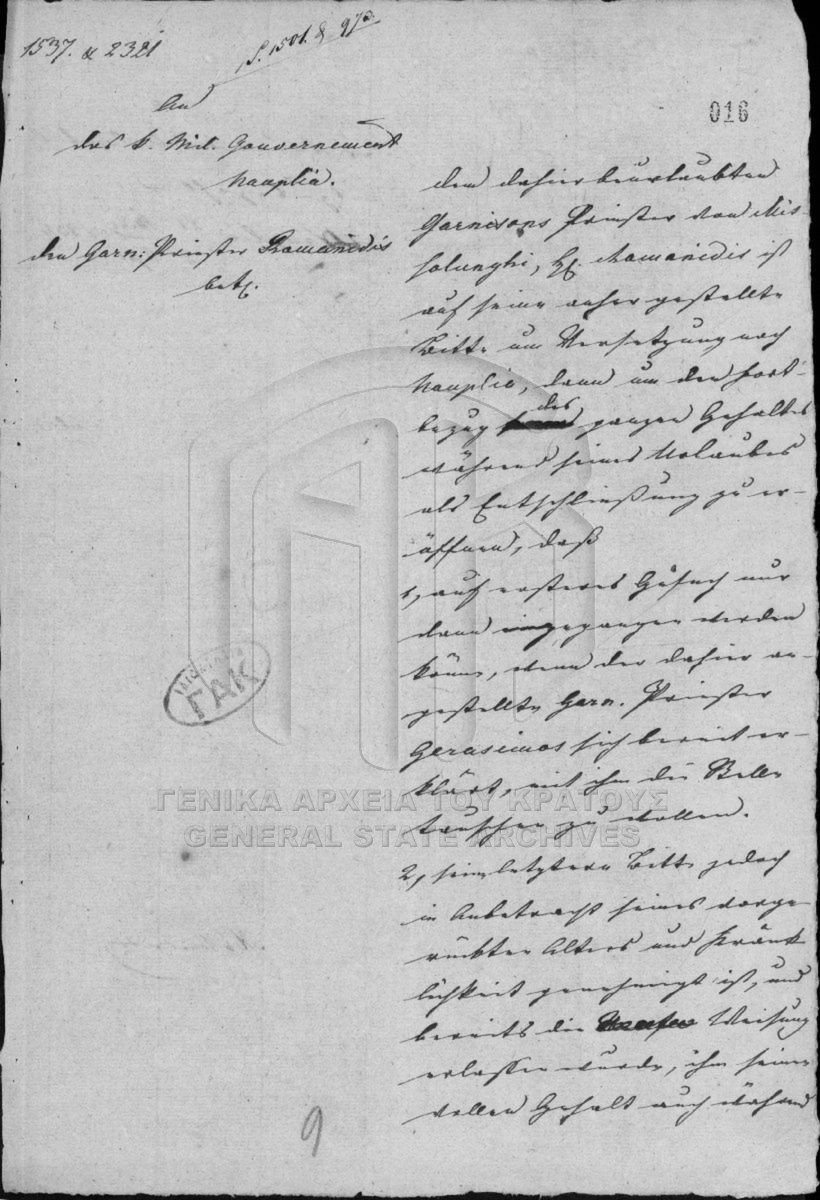 1537. & 2321
S. 1501. & 973.
016
An
das k. Mil. Gouvernement
Nauplia.
den Garn: Priester Romanidis
betr.
dem dahier beurlaubten
Garnisons Priester von Mis-
solunghi, H. Romanidis ist
auf seine anher gestellte
Bitte um Versetzung nach
Nauplia, dann um den Fort-
bezug des ganzen Gehaltes
während seines Urlaubes
als Entschließung zu er-
öffnen, daß
1, auf ersteres Gesuch nur
dann eingegangen werden
könne, wenn der dahier an-
gestellte Garn. Priester
Gerasimos sich bereit er-
klärt, mit ihm die Stelle
tauschen zu wollen.
2, seine letztere Bitte jedoch
in Anbetracht seines vorge-
rückten Alters und Kränk-
lichkeit genehmigt ist, und
bereits die Weisung
erlassen wurde, ihm seinen
vollen Gehalt auch während
9
ΓΑΚ
ΓΕΝΙΚΑ ΑΡΧΕΙΑ ΤΟΥ ΚΡΑΤΟΥΣ
GENERAL STATE ARCHIVES